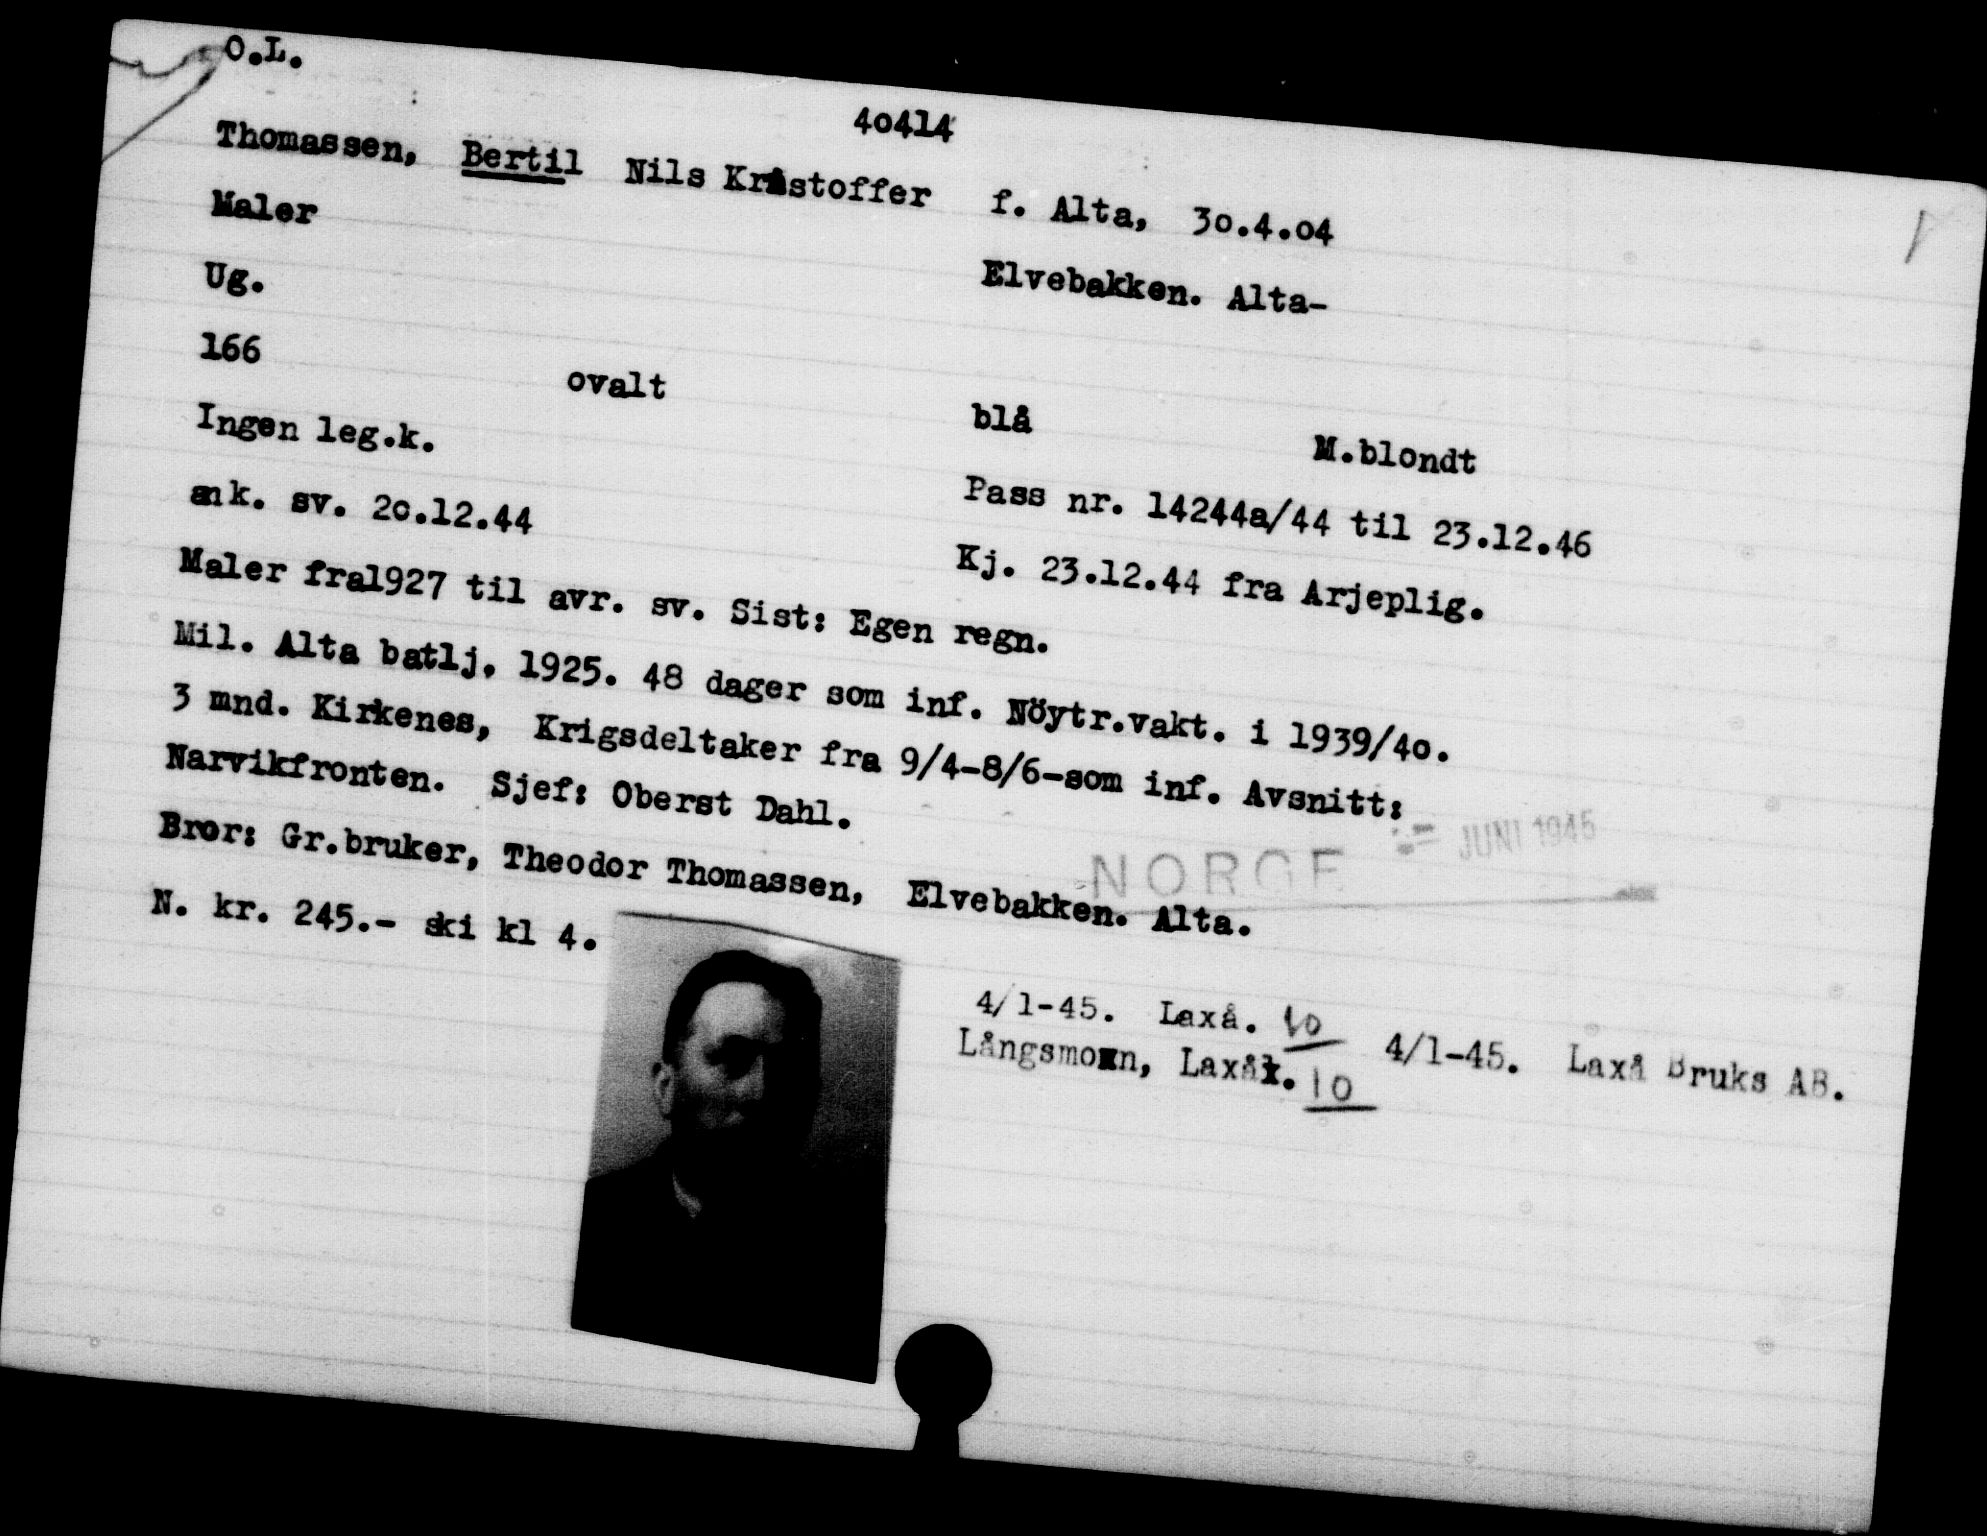 O.L.
40414
Thomassen, Bertil Nils Kristoffer f. Alta, 30.4.04
Maler
Elvebakken. Alta-
Ug.
166 ovalt blå M.blondt
Ingen leg.k.
Pass nr. 14244a/44 til 23.12.46
ank. sv. 20.12.44
Kj. 23.12.44 fra Arjeplig.
Maler fra1927 til avr. sv. Sist: Egen regn.
Mil. Alta batlj. 1925. 48 dager som inf. Nöytr.vakt. i 1939/40.
3 mnd. Kirkenes, Krigsdeltaker fra 9/4-8/6-som inf. Avsnitt:
Narvikfronten. Sjef: Oberst Dahl.
JUNI 1945
NORGE
Bror: Gr.bruker, Theodor Thomassen, Elvebakken. Alta.
N. kr. 245.- ski kl 4.
4/1-45. Laxå. 10 4/1-45. Laxå Bruks AB.
Långsmon, Laxå. 10